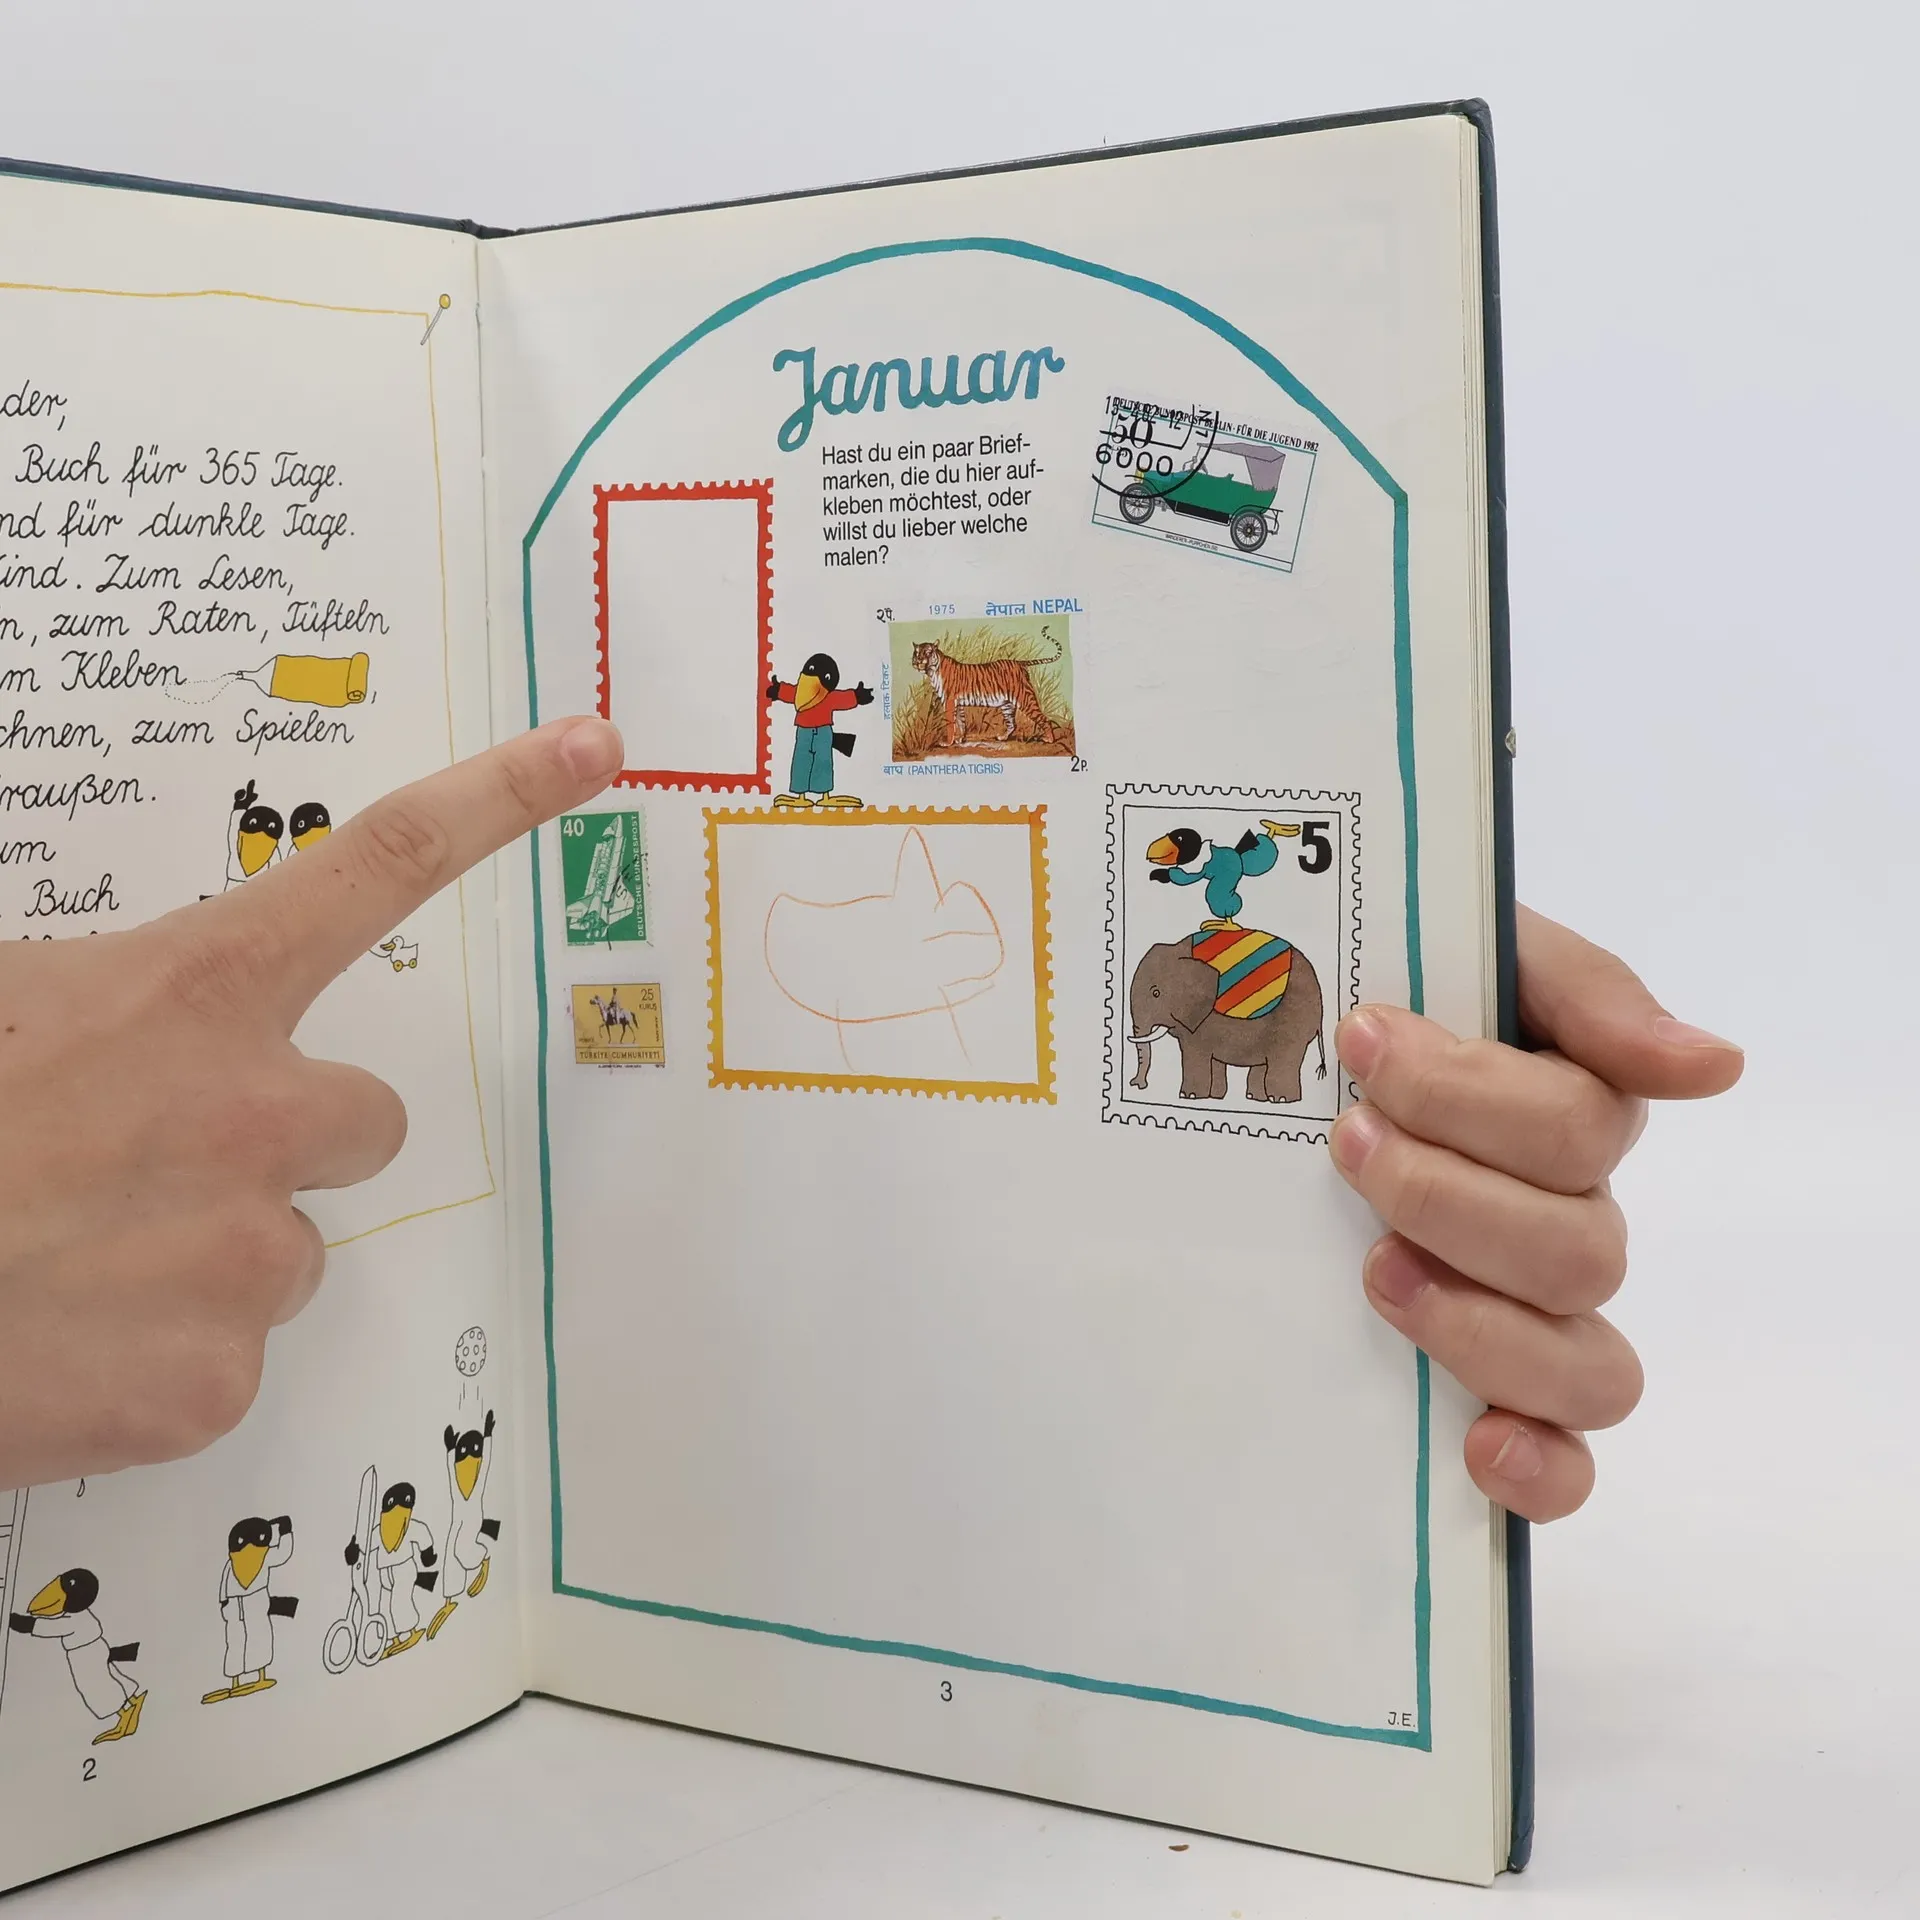 der,
Buch für 365 Tage.
nd für dunkle Tage.
Kind. Zum Lesen,
n, zum Raten, Tüfteln
m Kleben ,
chnen, zum Spielen
raußen.
um
Buch
2
Januar
Hast du ein paar Brief-
marken, die du hier auf-
kleben möchtest, oder
willst du lieber welche
malen?
DEUTSCHE BUNDESPOST BERLIN · FÜR DIE JUGEND 1982
50
6000
२पै. 1975 नेपाल NEPAL
हुलाक टिकट
बाघ (PANTHERA TIGRIS) 2P.
40
DEUTSCHE BUNDESPOST
25
KURUŞ
TÜRKİYE CUMHURİYETİ
5
3
J.E.